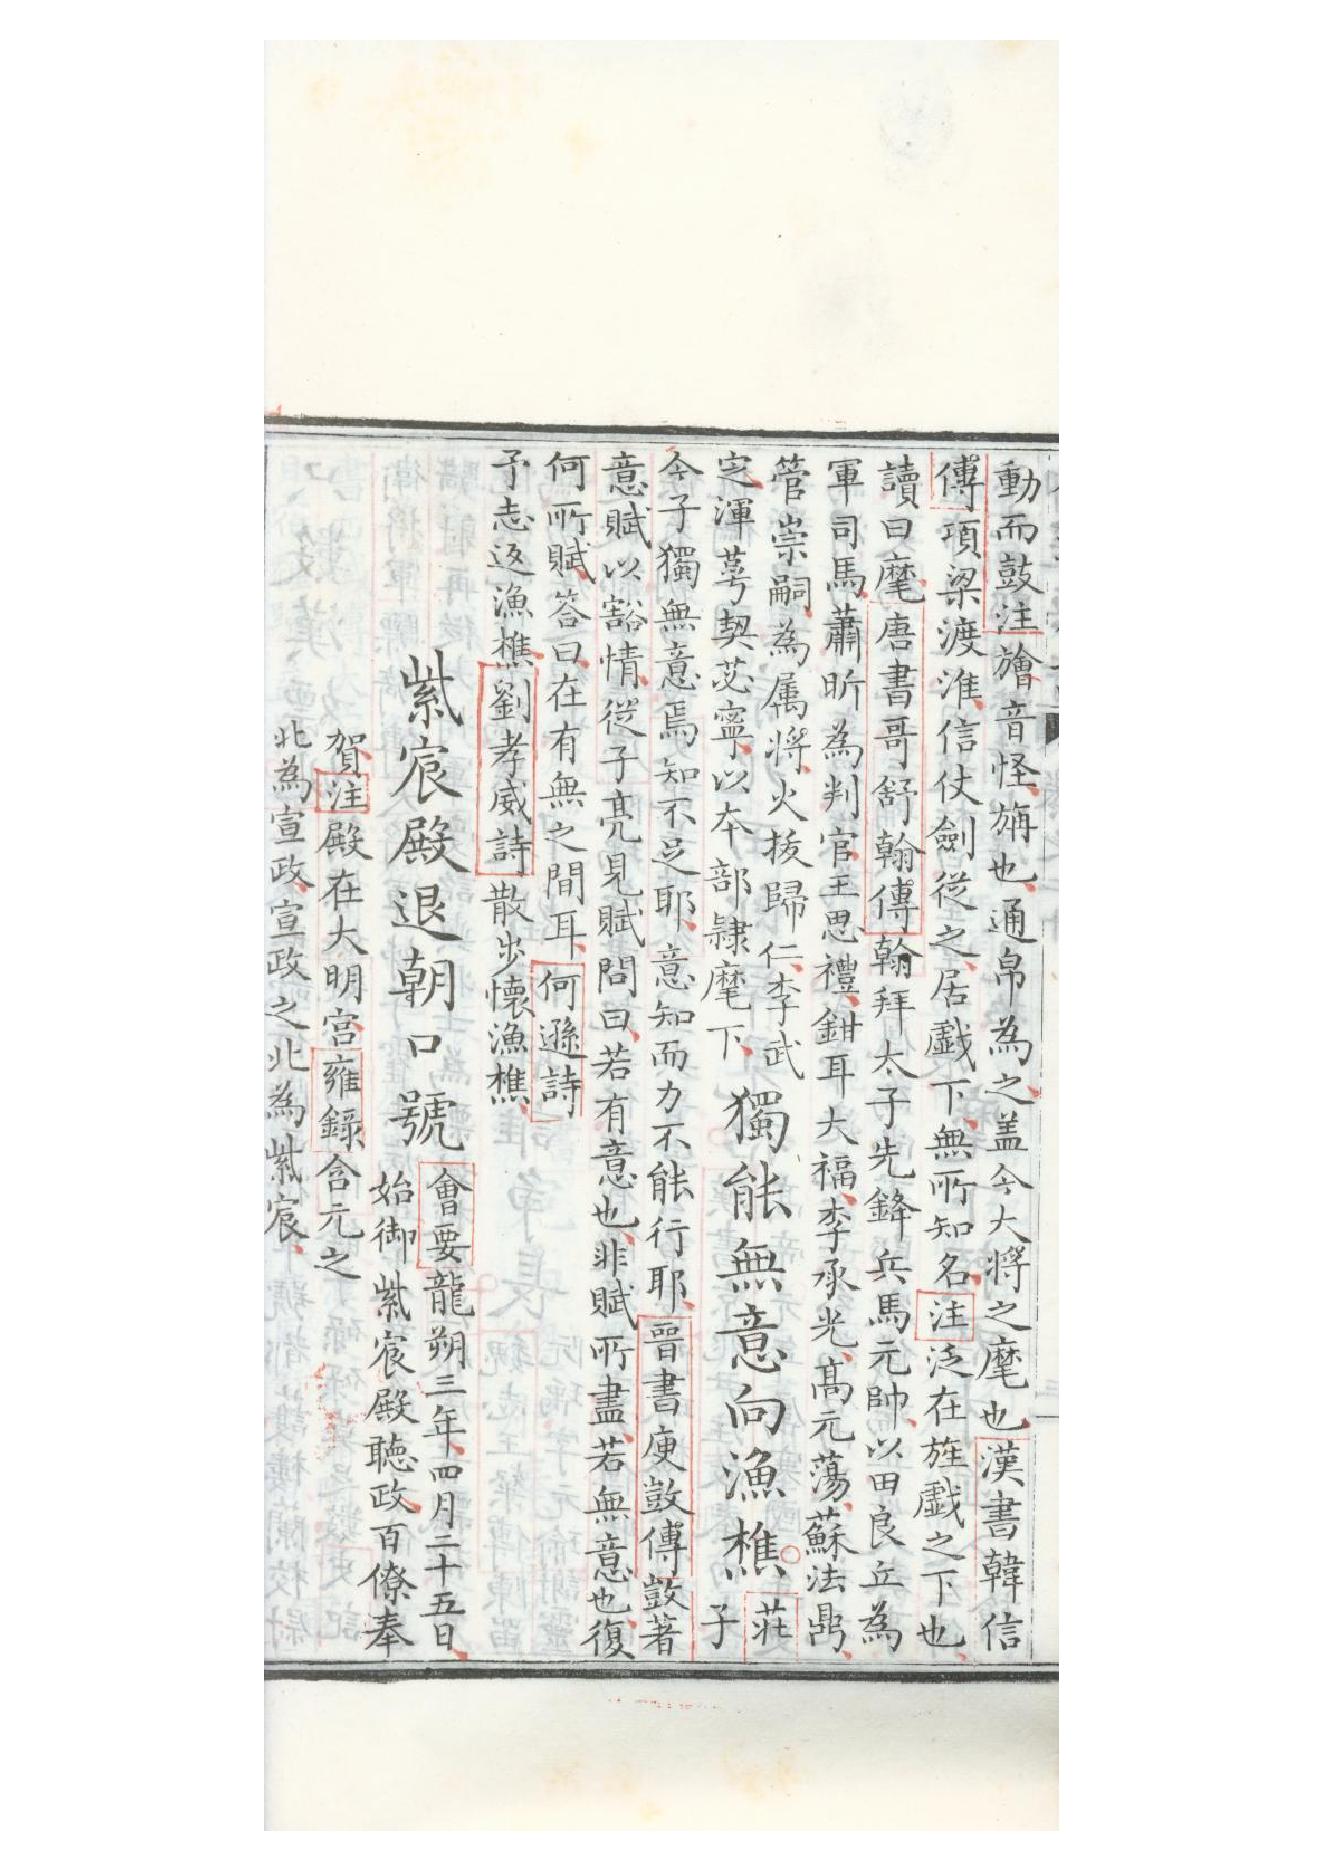 動而鼓注旝音怪旃也通帛為之盖今大將之麾也漢書韓信
傳項梁渡淮信仗劍從之居戲下無所知名注泛在旌戲之下也
讀曰麾唐書哥舒翰傳翰拜太子先鋒兵馬元帥以田良丘為
軍司馬蕭昕為判官王思禮鉗耳大福李承光高元蕩蘇法鼎
管崇嗣為属將火拔歸仁李武
定渾萼契苾寧以本部隷麾下
獨能無意向漁樵
莊
子
今子獨無意焉知不足耶意知而力不能行耶晉書庾敳傳敳著
意賦以豁情從子亮見賦問曰若有意也非賦所盡若無意也復
何所賦答曰在有無之間耳何遜詩
予志返漁樵劉孝威詩散步懷漁樵
紫宸殿退朝口號
會要龍朔三年四月二十五日
始御紫宸殿聴政百僚奉
賀注殿在大明宮雍録含元之
北為宣政宣政之北為紫宸